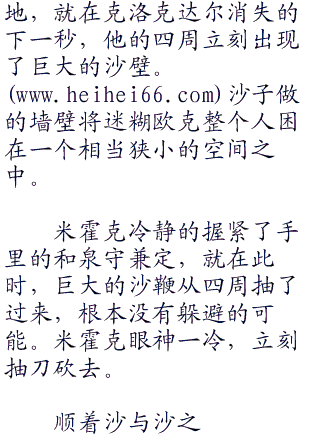 地，就在克洛克达尔消失的
下一秒，他的四周立刻出现
了巨大的沙壁。
(www.heihei66.com)沙子做
的墙壁将迷糊欧克整个人困
在一个相当狭小的空间之
中。
米霍克冷静的握紧了手
里的和泉守兼定，就在此
时，巨大的沙鞭从四周抽了
过来，根本没有躲避的可
能。米霍克眼神一冷，立刻
抽刀砍去。
顺着沙与沙之